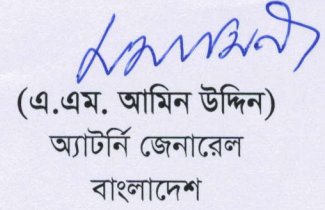 (এ.এম. আমিন উদ্দিন)
অ্যাটর্নি জেনারেল
বাংলাদেশ